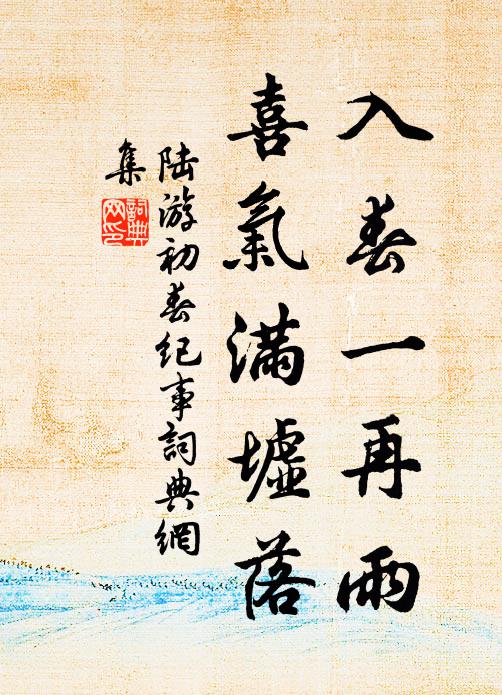 入春一再雨
喜氣滿墟落
陆游初春纪事詞典網
集
詞典
网印